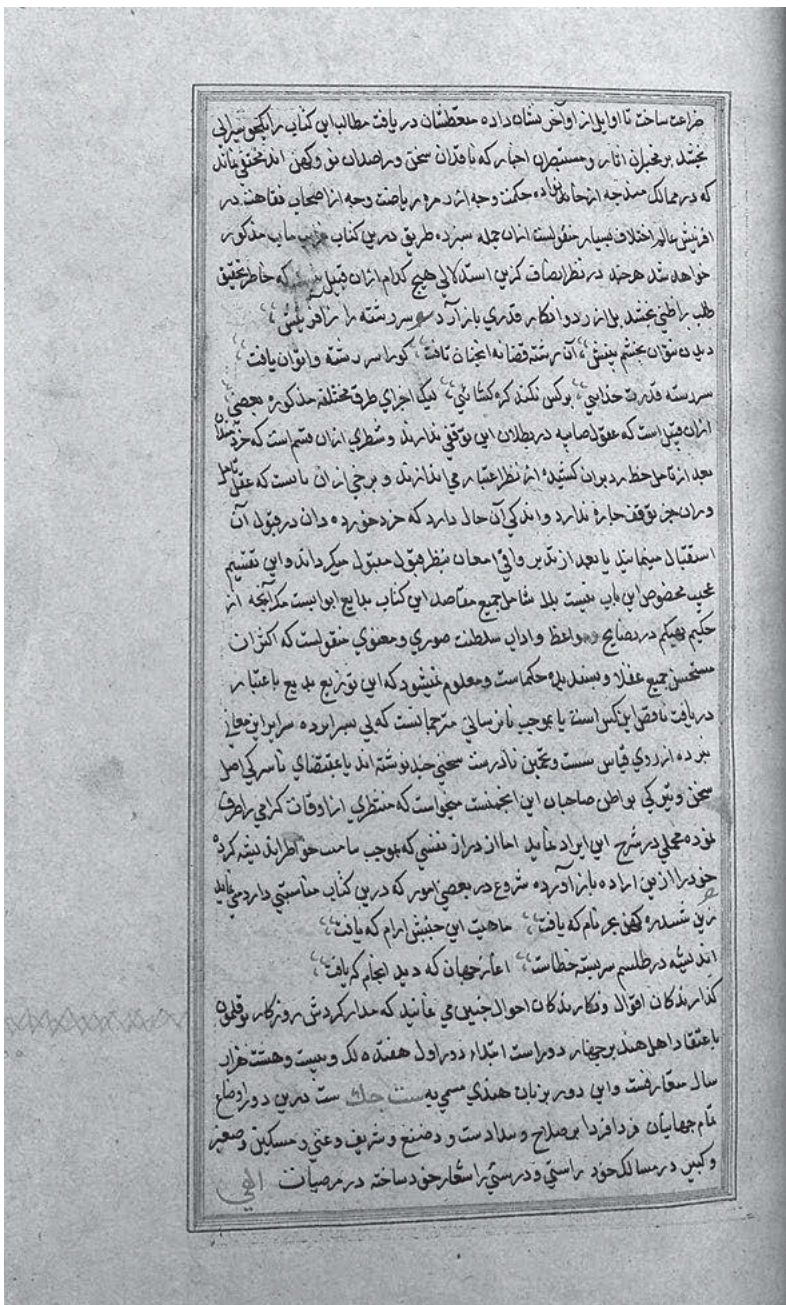 ضراعت ساخت تا اوایل از اواخر نشان داده متعطشان دریافت مطالب این کتاب را یکجو سیرابی
بخشد بر مخبران اثار و مستبصران اخبار که ناقدان سخن و راصدان نو و کهن اند مخفی نماند
که در ممالک هند چه از جانب حکمت وچه از زمره ریاضت وچه از اصحاب فقاهت در
افرینش عالم اختلاف بسیار منقولست ازان جمله سیزده طریق درین کتاب ماب مذکور
خواهد شد هرچند در نظر انصاف کزین استدلالی هیچ کدام ازان قبیل نیست که خاطر تحقیق
طلب را ظنی بخشد بل از رد و انکار قدری باز آرد سررشته راز آفرینش
دیدن نتوان بچشم بینش آن رشته قضا نه انچنان تافت کورا سر رشته وا توان یافت
سررشته قدرت خدایی بر کس نکند کره کشائی لیک اجرای طرق مختلفه مذکوره بعضی
ازان قبیل است که عقول صایبه در بطلان این توقفی ندارند و شطری ازان قسم است که خردمندان
بعد از تامل خط رد بران کشیده از نظر اعتبار می اندازند و برخی ازان بابست که عقل را تامل
دران جز توقف چاره ندارد و اندکی آن حال دارد که خرد خورده دان در قبول آن
استقبال مینماید یا بعد از تدبر وافی امعان بنظر قبول مقبول میکرداند و این تقسیم
عجیب مخصوص این باب نیست بلا شامل جمیع مقاصد این کتاب بدایع ابوابست مکر آنچه از
حکیم بهیکم در نصایح و مواعظ و اداب سلطنت صوری و معنوی منقولست که اکثر ان
مستحسن جمیع عقلا و پسندیده حکماست و معلوم نمیشود که این توزیع بدیع باعتبار
دریافت ناقص این کس است یا بموجب نارسائی مترجمانست که پی بسرا پرده سرایر این معانی
نبرده از روی قیاس سست و تخمین نادرست سخنی چند نوشته اند یا بمقتضای ناسرکی اصل
سخن و تیرکی بواطن صاحبان این انجمنست میخواست که منتظری از اوقات کرامی را صرف
نموده مجملی در شرح این ایراد نماید اما از دراز نفسی که بموجب ملالت خواطر اندیشه کرده
خود را ازین اراده باز آورده شروع در بعضی امور که درین کتاب مناسبتی دارد می نماید
زین ششدره کهن بجز نام که یافت ماهیت این جنبش ارام که یافت
اندیشه در طلسم سربسته خطاست اغاز جهان که دید انجام که یافت
کذارندکان اقوال و نکارندکان احوال چنین می نمایند که مدار کردش روزکار بوقلمون
باعتقاد اهل هند بر چهار دوراست ابتداء دور اول هفده لک و بیست و هشت هزار
سال متعارفست و این دور بزبان هندی مسمی به ست جک ست درین دور اوضاع
تمام جهانیان فردا فردا بر صلاح و سدادست و وضیع و شریف و غنی و مسکین و صغیر
و کبیر در مسالک خود راستی و درستی را شعار خود ساخته در مرضیات الهی